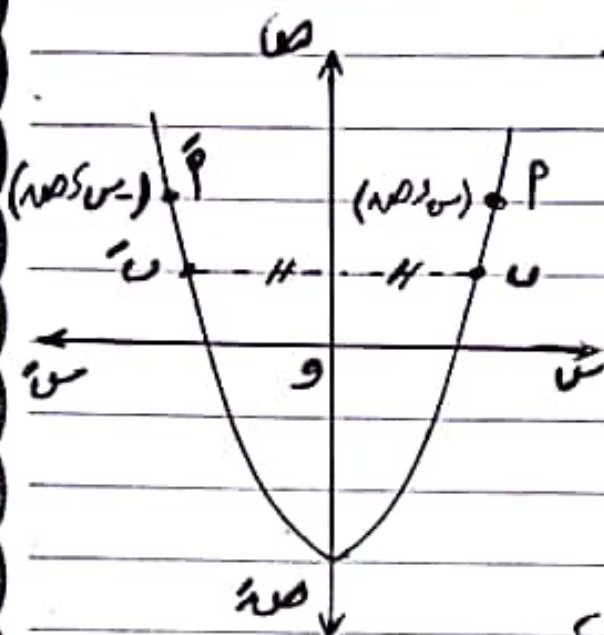 ص
(س، ص) P
(-س، ص) Ṕ
ب́ ب
س́ و س
ص́